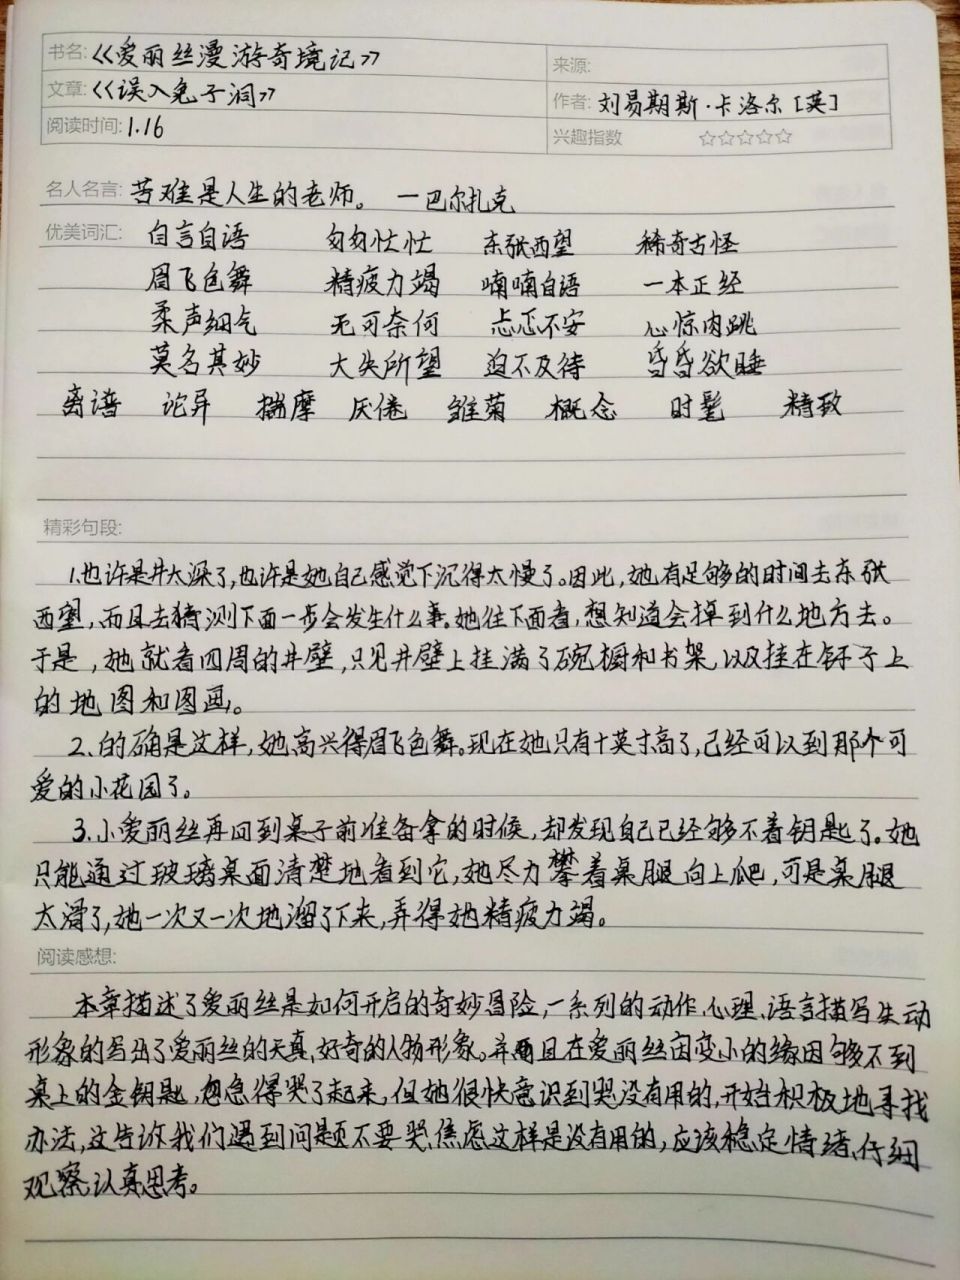 书名:《爱丽丝漫游奇境记》
来源:
文章:《误入兔子洞》
作者: 刘易期斯·卡洛尔[英]
阅读时间: 1.16
兴趣指数 ☆☆☆☆☆
名人名言: 苦难是人生的老师。 一巴尔扎克
优美词汇: 自言自语 匆匆忙忙 东张西望 稀奇古怪
眉飞色舞 精疲力竭 喃喃自语 一本正经
柔声细气 无可奈何 忐忑不安 心惊肉跳
莫名其妙 大失所望 迫不及待 昏昏欲睡
离谱 诧异 揣摩 厌倦 雏菊 概念 时髦 精致
精彩句段:
1.也许是井太深了,也许是她自己感觉下沉得太慢了。因此,她有足够的时间去东张
西望,而且去猜测下面一步会发生什么事。她往下面看,想知道会掉到什么地方去。
于是,她就看四周的井壁,只见井壁上挂满了碗橱和书架,以及挂在钚子上
的地图和图画。
2、的确是这样,她高兴得眉飞色舞。现在她只有十英寸高了,已经可以到那个可
爱的小花园了。
3.小爱丽丝再回到桌子前准备拿的时候,却发现自己已经够不着钥匙了。她
只能通过玻璃桌面清楚地看到它,她尽力攀着桌腿向上爬,可是桌腿
太滑了,她一次又一次地溜了下来,弄得她精疲力竭。
阅读感想:
本章描述了爱丽丝是如何开启的奇妙冒险,一系列的动作、心理、语言描写生动
形象的写出了爱丽丝的天真、好奇的人物形象。并而且在爱丽丝因变小的缘因够不到
桌上的金钥匙,急得哭了起来,但她很快意识到哭没有用的,开始积极地寻找
办法,这告诉我们遇到问题不要哭、焦虑这样是没有用的,应该稳定情绪、仔细
观察,认真思考。